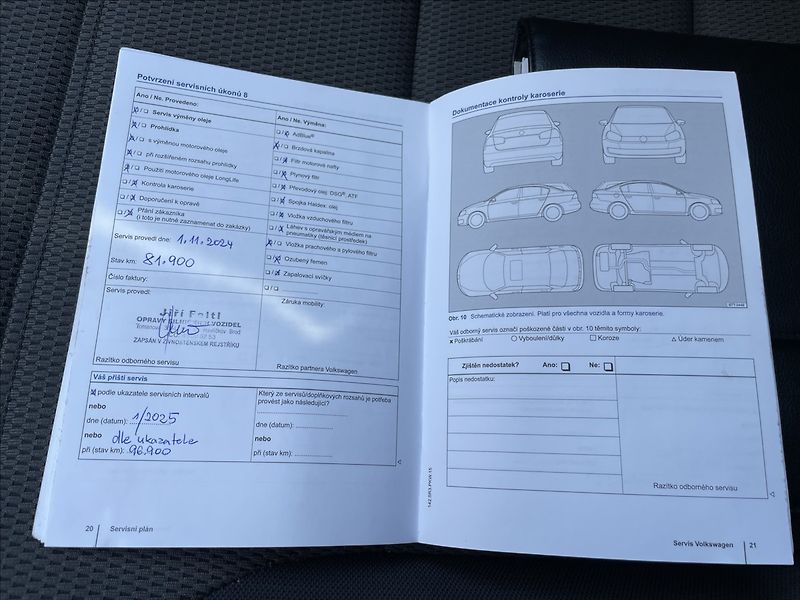 Potvrzení servisních úkonů 8
Ano / Ne. Provedeno:
Servis výměny oleje
Prohlídka
s výměnou motorového oleje
při rozšířeném rozsahu prohlídky
Použití motorového oleje LongLife
Kontrola karoserie
Doporučení k opravě
Přání zákazníka
(i toto je nutné zaznamenat do zakázky)
Servis provedl dne: 1.11.2024
Stav km: 81.900
Číslo faktury:
Servis provedl:
Jiří Feltl
OPRAVY SILNIČNÍCH VOZIDEL
ZAPSÁN V ŽIVNOSTENSKÉM REJSTŘÍKU
Razítko odborného servisu
Ano / Ne. Výměna:
AdBlue®
Brzdová kapalina
Filtr motorové nafty
Plynový filtr
Převodový olej: DSG®, ATF
Spojka Haldex: olej
Vložka vzduchového filtru
Láhev s opravářským médiem na
pneumatiky (těsnicí prostředek)
Vložka prachového a pylového filtru
Ozubený řemen
Zapalovací svíčky
Záruka mobility:
Razítko partnera Volkswagen
Váš příští servis
x podle ukazatele servisních intervalů
nebo
dne (datum): 1/2025
nebo dle ukazatele
při (stav km): 96.900
Který ze servisů/doplňkových rozsahů je potřeba
provést jako následující?
dne (datum):
nebo
při (stav km):
20 Servisní plán
Dokumentace kontroly karoserie
Obr. 10 Schematické zobrazení. Platí pro všechna vozidla a formy karoserie.
Váš odborný servis označí poškozené části v obr. 10 těmito symboly:
x Poškrábání ○ Vyboulení/důlky □ Koroze △ Úder kamenem
Zjištěn nedostatek? Ano: □ Ne: □
Popis nedostatku:
Razítko odborného servisu
142.5R3.PKW.15
Servis Volkswagen 21